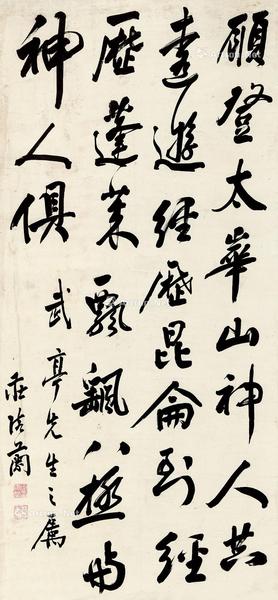 願登太華山神人共
遠遊經歷昆侖到經
歷蓬萊飄飖八極與
神人俱
武亭先生之屬
莊陔蘭